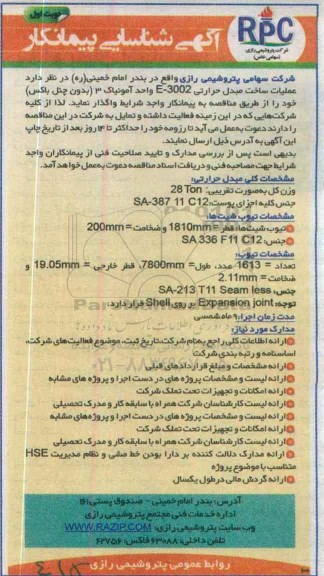 نوبت اول
آگهی شناسایی پیمانکار
RPC
شرکت پتروشیمی رازی
(سهامی خاص)
شرکت سهامی پتروشیمی رازی واقع در بندر امام خمینی(ره) در نظر دارد
عملیات ساخت مبدل حرارتی E-3002 واحد آمونیاک ۳ (بدون چنل باکس)
خود را از طریق مناقصه به پیمانکار واجد شرایط واگذار نماید. لذا از کلیه
شرکت‌هایی که در این زمینه فعالیت داشته و تمایل به شرکت در این مناقصه
را دارند دعوت به‌عمل می آید تا رزومه خود را حداکثر تا ۱۴ روز بعد از تاریخ چاپ
این آگهی به آدرس ذیل ارسال نمایند.
بدیهی است پس از بررسی مدارک و تایید صلاحیت فنی از پیمانکاران واجد
شرایط جهت مصاحبه فنی و دریافت اسناد مناقصه دعوت به‌عمل خواهد آمد.
مشخصات کلی مبدل حرارتی:
وزن کل به‌صورت تقریبی: 28 Ton
جنس کلیه اجزای پوسته: SA-387 11 C12
مشخصات تیوب شیت‌ها:
تیوب شیت‌ها: قطر = 1810mm و ضخامت = 200mm
جنس: SA 336 F11 C12
مشخصات تیوب:
تعداد = 1613 عدد، طول= 7800mm، قطر خارجی = 19.05mm و
ضخامت= 2.11mm
جنس: SA-213 T11 Seam less
توجه: Expansion joint بر روی Shell قرار دارد.
مدت زمان اجرا: ۹ ماه شمسی
مدارک مورد نیاز:
ارائه اطلاعات کلی راجع به‌نام شرکت، تاریخ ثبت، موضوع فعالیت‌های شرکت،
اساسنامه و رتبه بندی شرکت
ارائه مشخصات و مبلغ قراردادهای قبلی
ارائه لیست و مشخصات پروژه های در دست اجرا و پروژه های مشابه
ارائه امکانات و تجهیزات تحت تملک شرکت
ارائه لیست کارشناسان شرکت همراه با سابقه کار و مدرک تحصیلی
ارائه لیست و مشخصات پروژه های در دست اجرا و پروژه‌های مشابه
ارائه امکانات و تجهیزات تحت تملک شرکت
ارائه لیست کارشناسان شرکت همراه با سابقه کار و مدرک تحصیلی
ارائه مدارک دلالت کننده بر دارا بودن خط مشی و نظام مدیریت HSE
متناسب با موضوع پروژه
ارائه گردش مالی در طول یکسال
آدرس: بندر امام خمینی - صندوق پستی ۱۶۱
اداره خدمات فنی مجتمع پتروشیمی رازی
وب سایت پتروشیمی رازی: WWW.RAZIP.COM
تلفن داخلی: ۶۳۰۸۸ فاکس: ۶۲۷۵۶
روابط عمومی پتروشیمی رازی